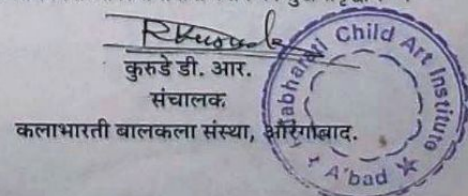 कुरुडे डी. आर.
संचालक
कलाभारती बालकला संस्था, औरंगाबाद.
Kalabharati Child Art Institute
A'bad